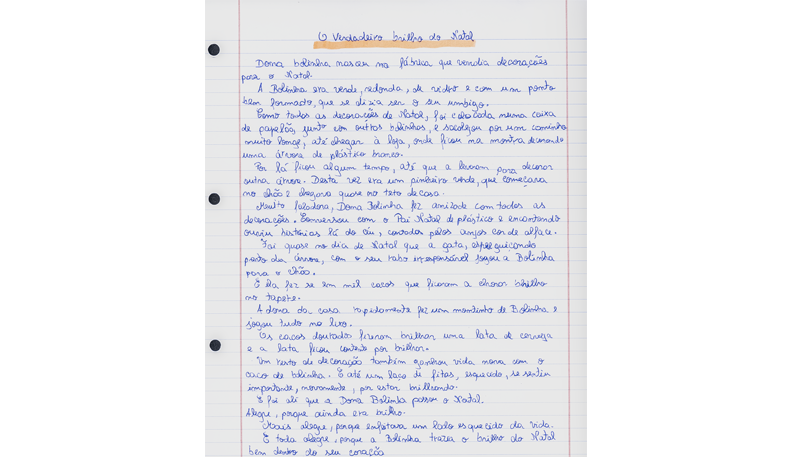 O Verdadeiro brilho do Natal
Dona bolinha nasceu na fábrica que vendia decorações
para o Natal.
A Bolinha era verde, redonda, de vidro e com um ponto
bem formado, que se dizia ser o seu umbigo.
Como todas as decorações de Natal, foi colocada numa caixa
de papelão, junto com outras bolinhas, e sacolejou por um caminho
muito longe, até chegar à loja, onde ficou na montra decorando
uma árvore de plástico branco.
Por lá ficou algum tempo, até que a levaram para decorar
outra árvore. Desta vez era um pinheiro verde, que começava
no chão e chegava quase no teto de casa.
Muito faladora, Dona Bolinha fez amizade com todas as
decorações. Conversou com o Pai Natal de plástico e encontendo
ouviu histórias lá do céu, contadas pelos anjos cor de alface.
Foi quase no dia de Natal que a gata, espreguiçando
perto da árvore, com o seu rabo irresponsável jogou a Bolinha
para o chão.
E ela fez se em mil cacos que ficaram a chorar brilho
no tapete.
A dona da casa rapidamente fez um montinho de Bolinha e
jogou tudo no lixo.
Os cacos doutados fizeram brilhar uma lata de cerveja
e a lata ficou contente por brilhar.
Um resto de decoração também ganhou vida nova com o
caco de bolinha. E até um laço de fitas, esquecido, se sentiu
importante, novamente, por estar brilhando.
E foi ali que a Dona Bolinha passou o Natal.
Alegre, porque ainda era brilho.
Mais alegre, porque enfeitava um lado esquecido da vida.
E toda alegre, porque a Bolinha trazia o brilho do Natal
bem dentro do seu coração